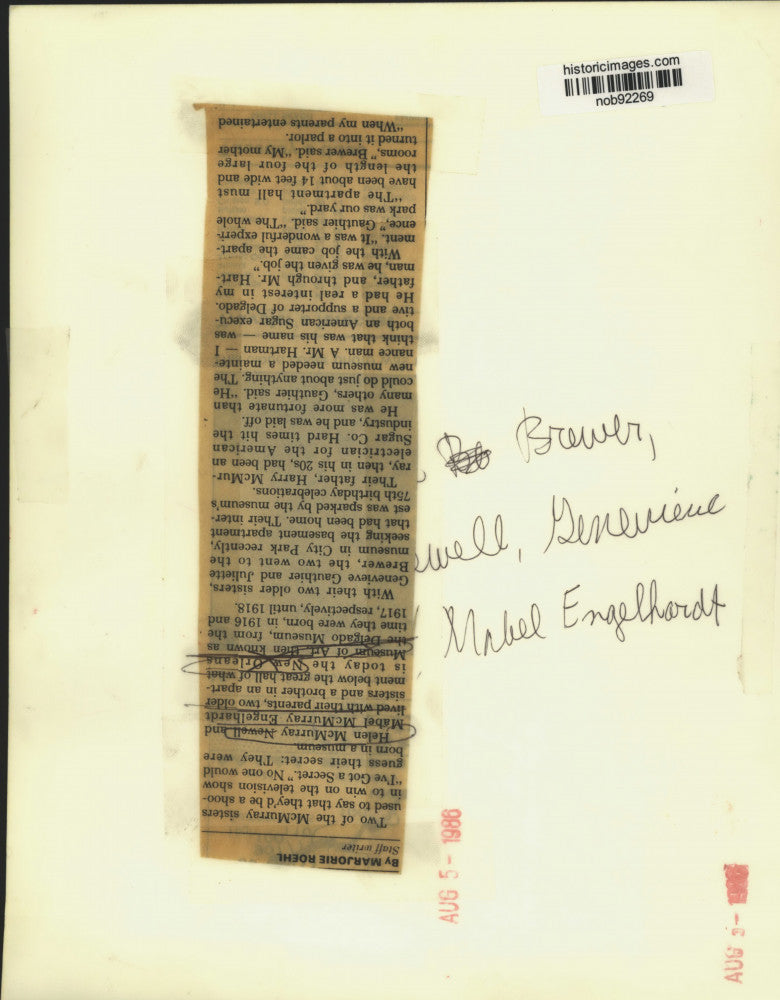 historicimages.com
nob92269
By MARJORIE ROEHL
Staff writer
Two of the McMurray sisters
used to say that they'd be a shoo-
in to win on the television show
"I've Got a Secret." No one would
guess their secret: They were
born in a museum.
Helen McMurray Newell and
Mabel McMurray Engelhardt
lived with their parents, two older
sisters and a brother in an apart-
ment below the great hall of what
is today the New Orleans
Museum of Art, then known as
the Delgado Museum, from the
time they were born, in 1916 and
1917, respectively, until 1918.
With their two older sisters,
Genevieve Gauthier and Juliette
Brewer, the two went to the
museum in City Park recently,
seeking the basement apartment
that had been home. Their inter-
est was sparked by the museum's
75th birthday celebrations.
Their father, Harry McMur-
ray, then in his 20s, had been an
electrician for the American
Sugar Co. Hard times hit the
industry, and he was laid off.
He was more fortunate than
many others, Gauthier said. "He
could do just about anything. The
new museum needed a mainte-
nance man. A Mr. Hartman — I
think that was his name — was
both an American Sugar execu-
tive and a supporter of Delgado.
He had a real interest in my
father, and through Mr. Hart-
man, he was given the job."
With the job came the apart-
ment. "It was a wonderful experi-
ence," Gauthier said. "The whole
park was our yard."
"The apartment hall must
have been about 14 feet wide and
the length of the four large
rooms," Brewer said. "My mother
turned it into a parlor.
"When my parents entertained
Brewer,
well, Genevieve
Mabel Engelhardt
AUG 5 - 1986
AUG